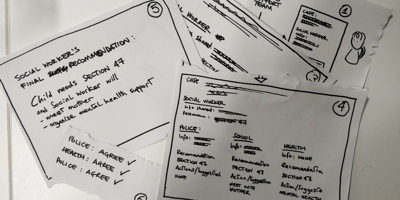 5
SOCIAL WORKER'S
FINAL RECOMMENDATION:
Child needs SECTION 47
and Social Worker will
- meet mother
- organise mental health support
POLICE: AGREE ✓
HEALTH: AGREE ✓
POLICE: AGREE ✓
TEAM
1
CASE
SOCIAL WORKER
4
CASE
SOCIAL WORKER
Info shared:
POLICE:
Info:
Recommendation
SECTION 47
Actions/Suggestion
NONE
SCHOOL
Info:
Recommendation
SECTION 47
Action/Suggestion
MEET WITH
MOTHER
HEALTH
Info: NONE
Recommendation
SECTION 47
Action/Suggestion
MENTAL HEALTH